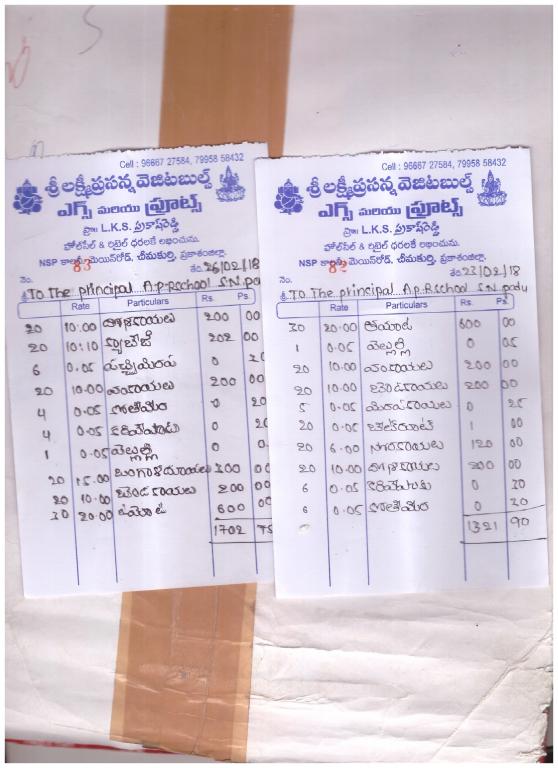 Cell : 96667 27584, 79958 58432
శ్రీ లక్ష్మీప్రసన్న వెజిటబుల్స్
ఎగ్స్ మరియు ఫ్రూట్స్
ప్రొ॥ L.K.S. ప్రకాష్‌రెడ్డి
హోల్‌సేల్ & రిటైల్ ధరలకే లభించును.
NSP కాలనీ, మెయిన్‌రోడ్, చీమకుర్తి, ప్రకాశంజిల్లా.
నెం. 83 తేది 26/02/18
శ్రీ To The principal A.p.RSchool S.N. padu
Rate Particulars Rs. Ps
20 10:00 200 00
20 10:10 క్యాబేజి 202 00
6 0.05 పచ్చిమిరప 0
20 10.00 వంకాయలు 200 00
4 0.05 కొతిమిర 0 20
4 0.05 కరివేపాకు 0
1 0.05 వెల్లుల్లి 0
20 15.00 బంగాళదుంపలు 300 00
20 10.00 బెండకాయలు 200 00
30 20.00 టమోట 600 00
1702
Cell : 96667 27584, 79958 58432
శ్రీ లక్ష్మీప్రసన్న వెజిటబుల్స్
ఎగ్స్ మరియు ఫ్రూట్స్
ప్రొ॥ L.K.S. ప్రకాష్‌రెడ్డి
హోల్‌సేల్ & రిటైల్ ధరలకే లభించును.
NSP కాలనీ, మెయిన్‌రోడ్, చీమకుర్తి, ప్రకాశంజిల్లా.
నెం. 82 తేది 23/02/18
శ్రీ To The principal A.p.RSchool S.N. padu
Rate Particulars Rs. Ps
30 20.00 600 00
1 0.05 వెల్లుల్లి 0 05
20 10.00 వంకాయలు 200 00
20 10.00 బెండకాయలు 200 00
5 0.05 మిరపకాయలు 0 25
20 0.05 బీట్‌రూట్ 1 00
20 6.00 120 00
20 10.00 200 00
6 0.05 కరివేపాకు 0 30
6 0.05 కొతిమిర 0 30
1321 90